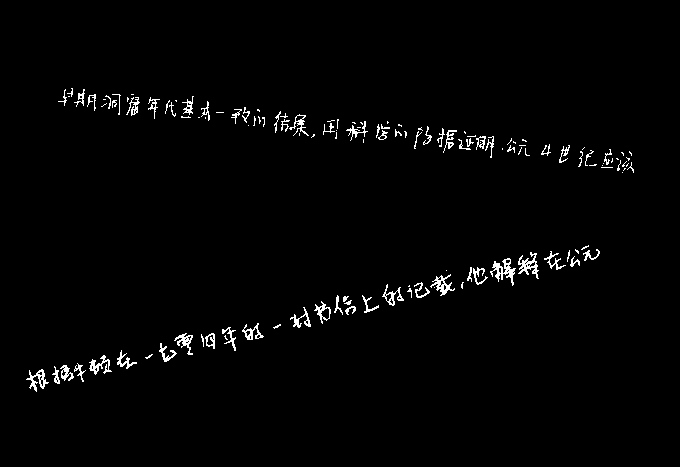 早期洞窟年代基本一致的结果,用科学的依据证明.公元4世纪应该
根据牛顿在一七零四年的一封书信上的记载,他解释在公元